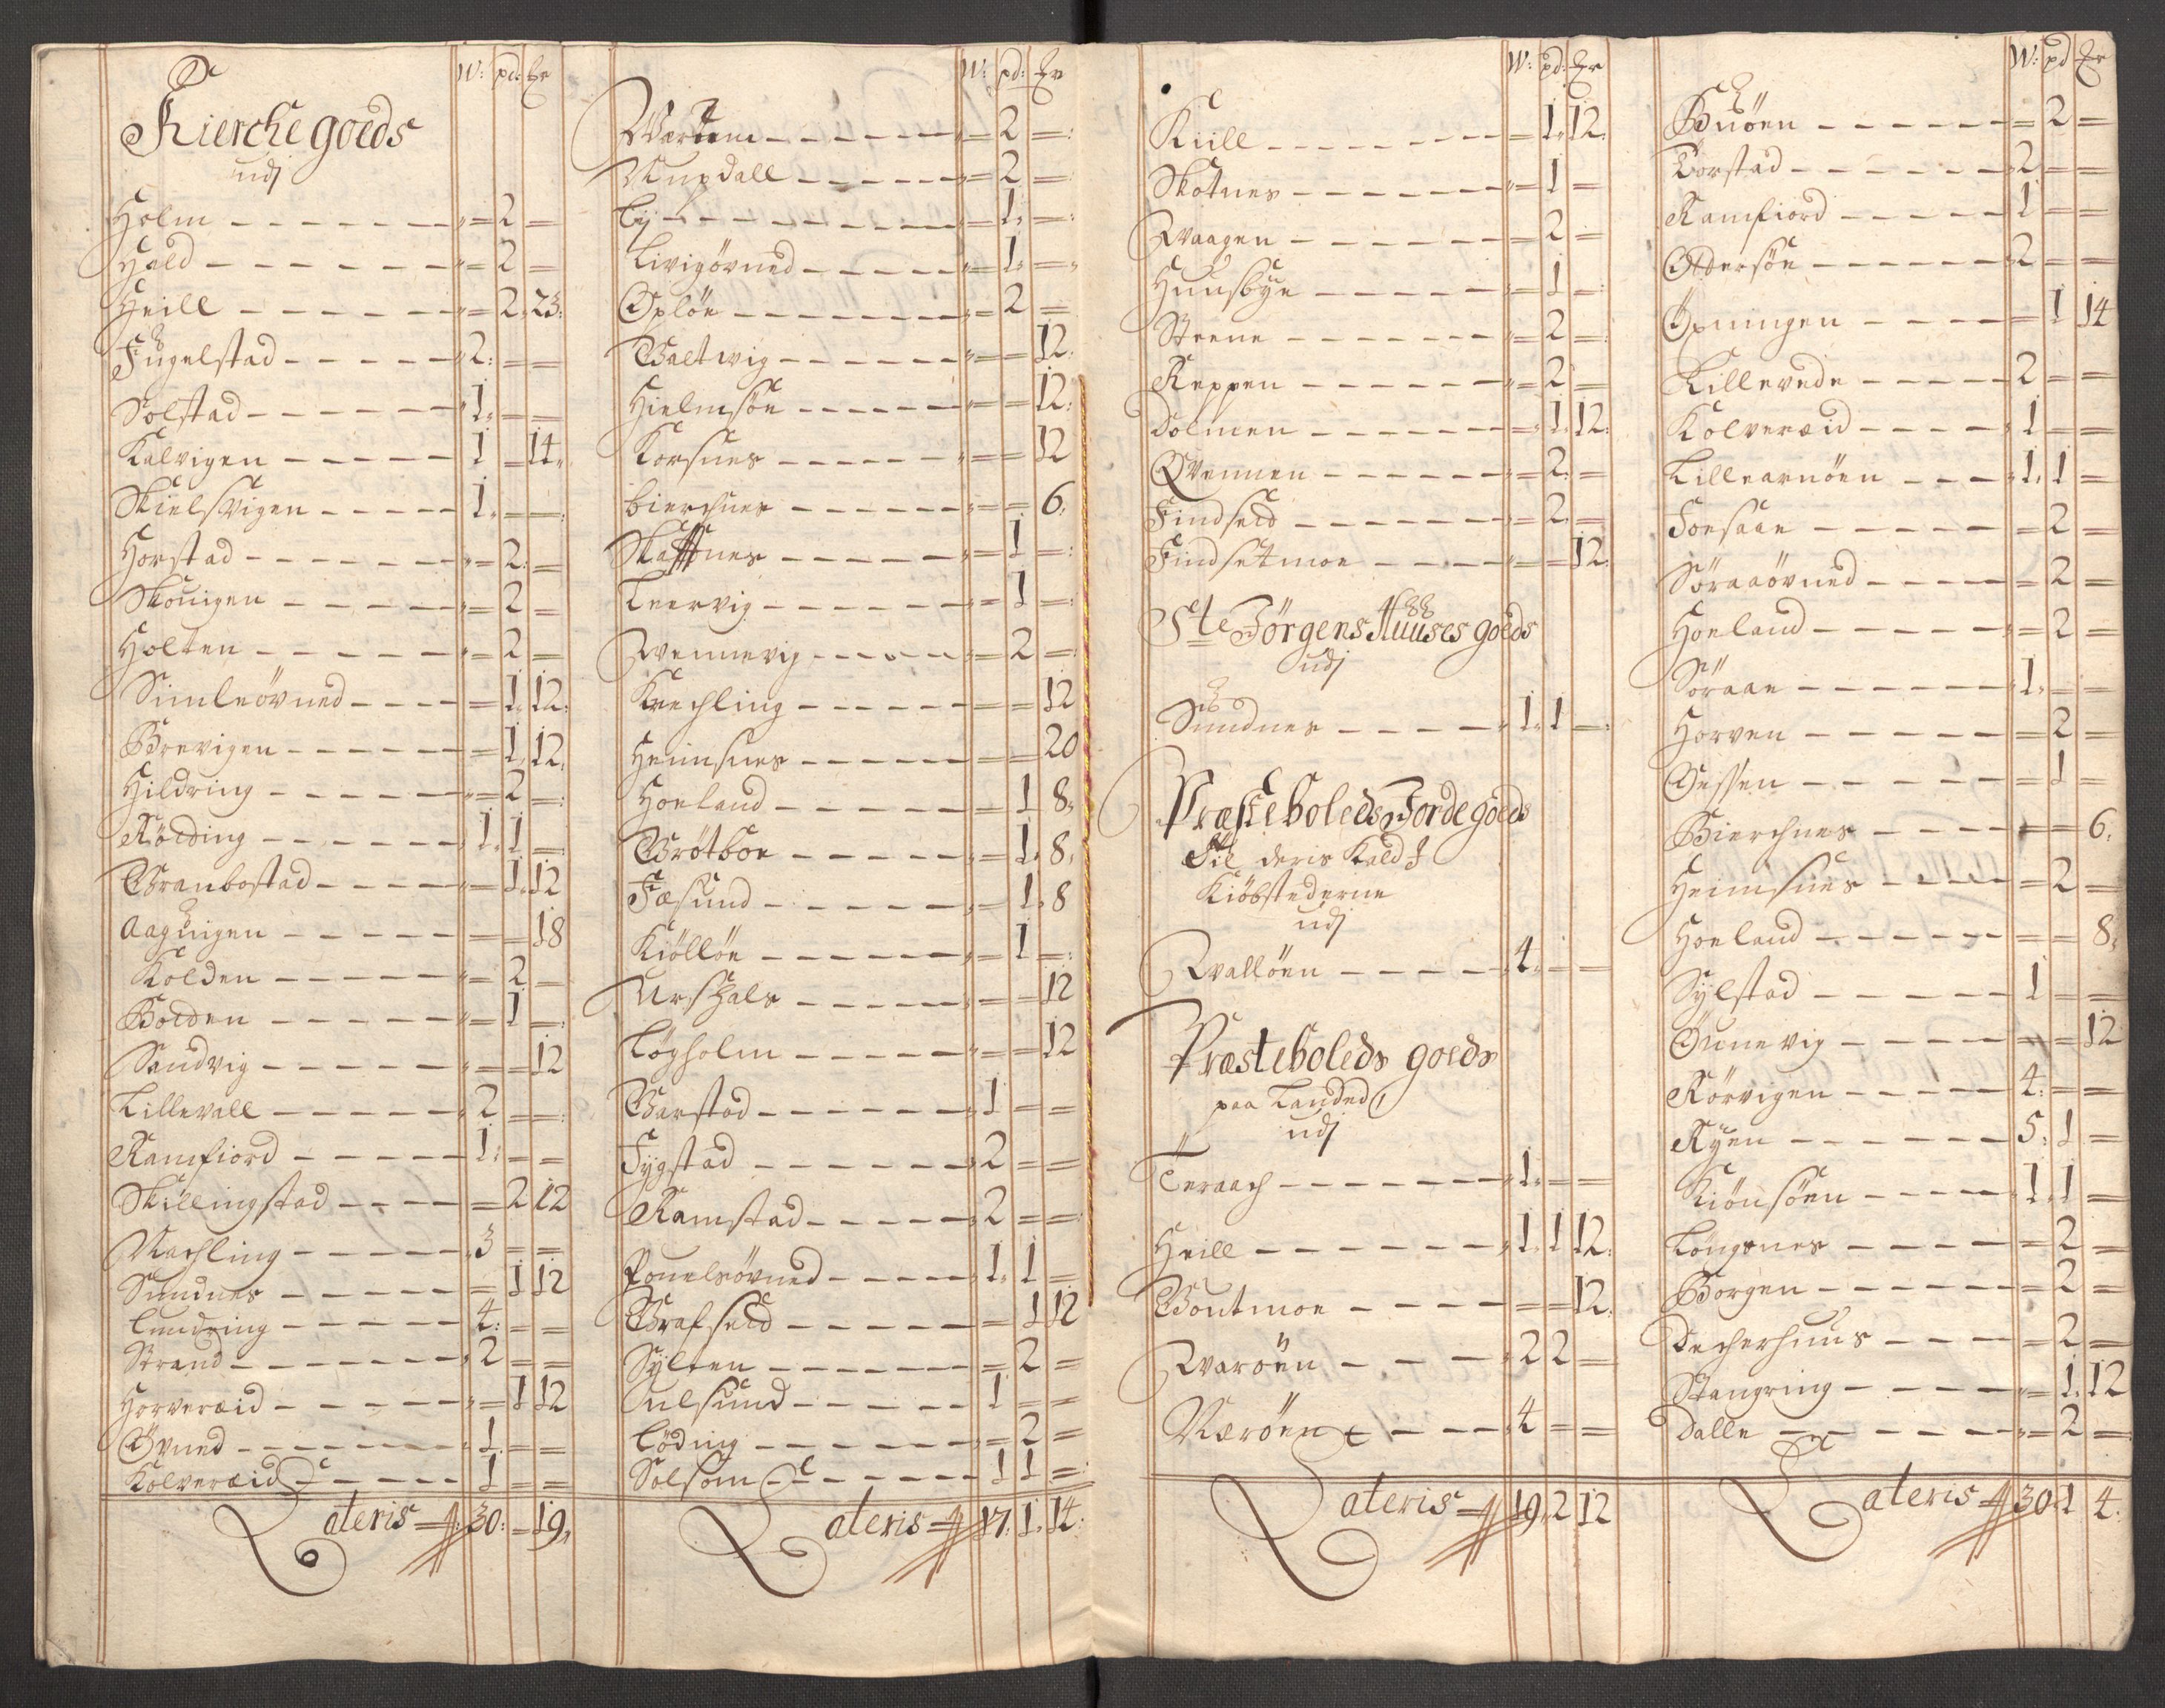 W: pd: Er
Kierche goeds
udj
Holm - - - - - - = 2 =
Hald - - - - - - = 2 =
Heill - - - - - = 2. 23:
Fugelstad - - - - 2: = =
Solstad - - - - - 1. = =
Kalvigen - - - - - 1 = 14.
Skielsvigen - - - - 1. = =
Horstad - - - - - = 2: =
Skouigen - - - - - = 2 =
Holten - - - - - = 2 =
Simleövned - - - - = 1. 12:
Borvigen - - - - - = 1. 12.
Hildring - - - - - = 2 =
Rölding - - - - - 1. 1 =
Branbostad - - - - = 1. 12
Aaguigen - - - - - = = 18
Kolden - - - - - = 2 =
Bolden - - - - - = 1 =
Sandvig - - - - - = = 12
Lillevall - - - - - 2 = =
Ramfiord - - - - - 1: = =
Skillingstad - - - - = 2 12
Machling - - - - - 3 = =
Sundnes - - - - - = 1 12
Lundring - - - - - 4: = =
Strand - - - - - - 2 = =
Horveræid - - - - - = 1 12
Övned - - - - - - 1. = =
Kolveræid - - - - 1 = =
Lateris 30: = 19.
W: pd: Er
Wærem - - - - - = 2 =
Nupdall - - - - - = 2 =
Lÿ - - - - - - = 1. =
Livigövned - - - - = 1. =
Oplöe - - - - - = 2 =
Waltwig - - - - - = = 12.
Hielmsöe - - - - - = = 12:
Korsnes - - - - - = = 12
Bierchnes - - - - - = = 6.
Skaffnes - - - - - = 1 =
Leervig - - - - - = 1 =
Wennevig - - - - = 2 =
Krechling - - - - - = = 12
Heimsnes - - - - - = = 20
Horland - - - - - = 1 8.
Brötboe - - - - - = 1. 8.
Fæsund - - - - - = 1. 8
Kiöllöe - - - - - = 1 =
Urshals - - - - - = = 12
Lögholm - - - - - = = 12
Barstad - - - - - 1 = =
Fygstad - - - - - 2 = =
Ramstad - - - - - 2 = =
Pouelsövned - - - - 1. 1 =
Grafseid - - - - - = 1 12
Sÿlten - - - - - = 2 =
Aulsund - - - - - 1 = =
Löding - - - - - = 2 =
Solsom - - - - - 1 1 =
Lateris 17: 1. 14:
W: pd: Er
Kiill - - - - - - = 1. 12.
Skotnes - - - - - = 1 =
Waagen - - - - - = 2 =
Huusbye - - - - - = 1 =
Steene - - - - - = 2 =
Reppen - - - - - = 2 =
Dolmen - - - - - = 1. 12:
Qvennen - - - - - = 2: =
Findseid - - - - - = 2. =
Findsetmoe - - - - = = 12:
Ste Jörgens Huuses goeds
udj
Sundnes - - - - - 1. 1 =
Præsteboleds Jorde goeds
Til deris Kald J
Kiöbstederne
udj
Wallöen - - - - - 4. = =
Præsteboleds goeds
paa Landed
udj
Teraach - - - - - 1. = =
Heill - - - - - - 1. 1 12:
Boutmoe - - - - = = 12.
Waröen - - - - 2 2 =
Næröen - - - 4 = =
Lateris 19. 2 12
W: pd Er
Buöen - - - - - = 2 =
Torstad - - - - - 2 = =
Ramfiord - - - - - 1 = =
Ottersöe - - - - - 2 = =
Opningen - - - - = 1 14
Lillevede - - - - - 2 = =
Kolveræid - - - - 1 = =
Lillearnöen - - - 1. 1 =
Forsaae - - - - - = 2 =
Söraaövned - - - - = 2 =
Horland - - - - - = 2 =
Söraae - - - - - 1. = =
Horven - - - - - = 2 =
Gessen - - - - - = 1 =
Bierchnes - - - - = = 6.
Heimsnes - - - - = 2 =
Horland - - - - - = = 8.
Sÿlstad - - - - - 1 = =
Gunevig - - - - = = 12
Rörvigen - - - - 4: = =
Rÿen - - - - - 5: 1 =
Kiönsöen - - - - 1. 1 =
Löngsnes - - - - = 2 =
Borgen - - - - - = 2 =
Decherhuus - - - = 2 =
Stangring - - - - = 1. 12
Dalle - - - - - = 2 =
Lateris 30. 1 4.